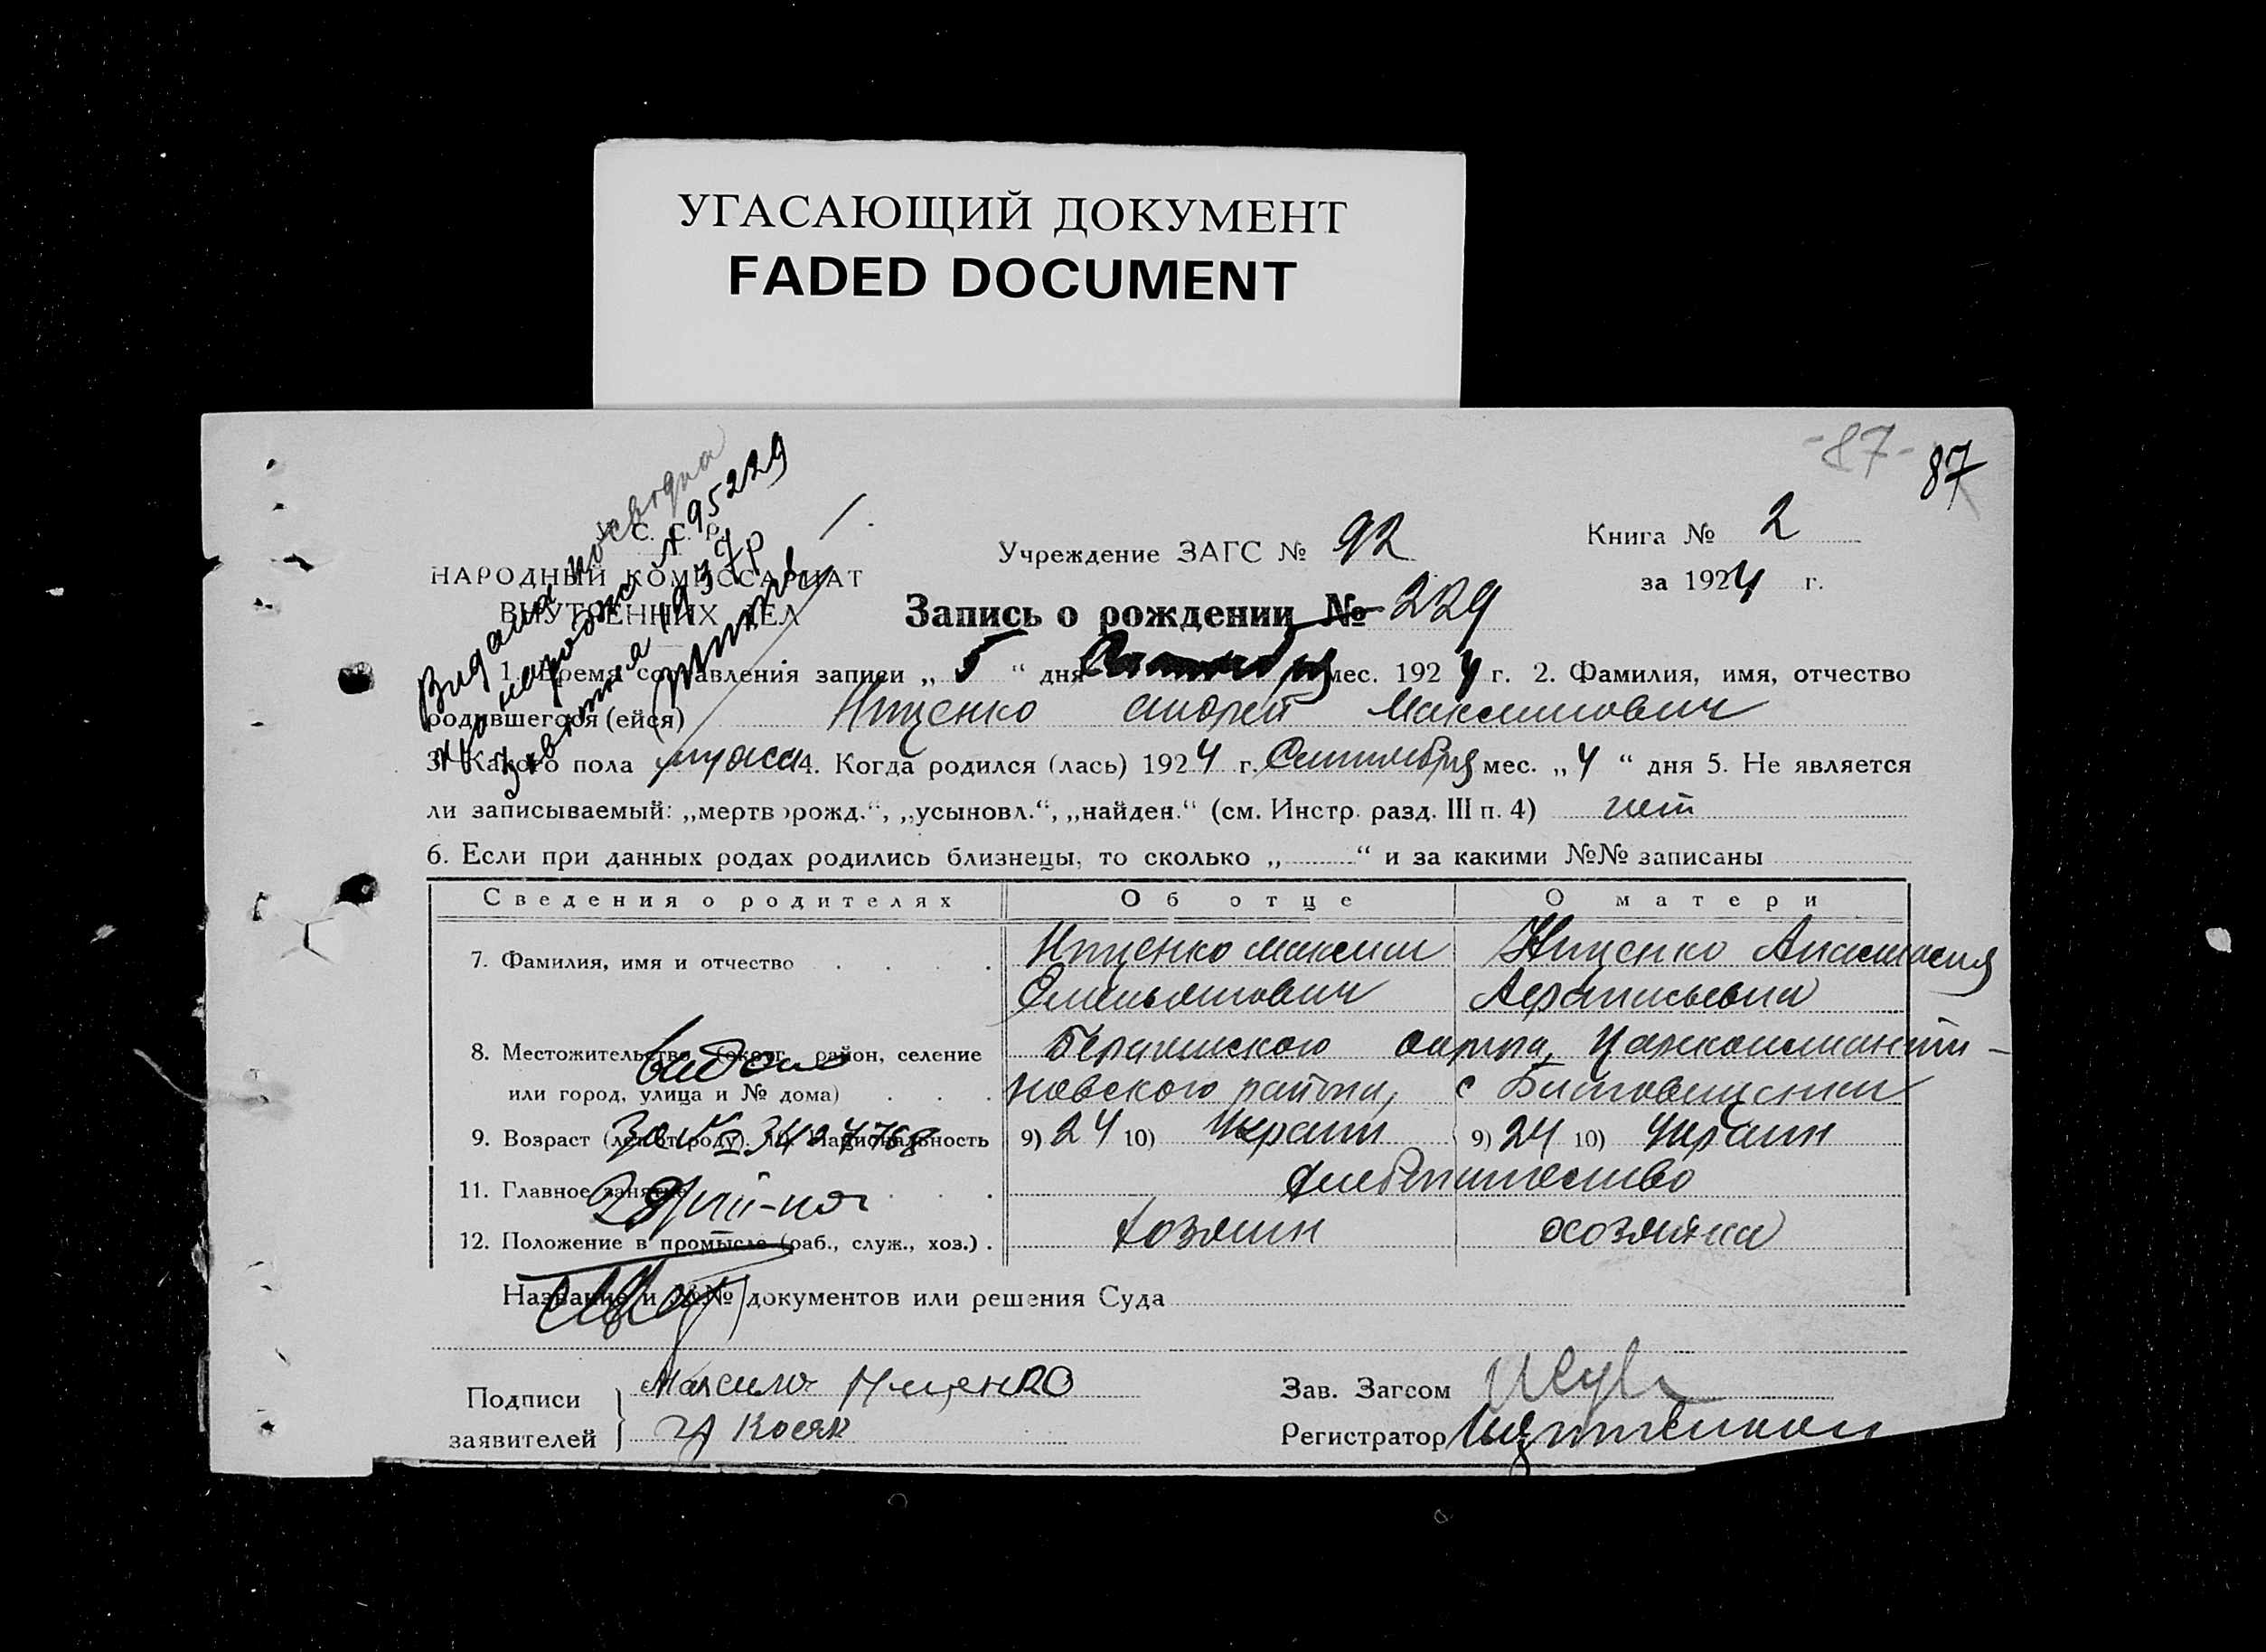 УГАСАЮЩИЙ ДОКУМЕНТ
FADED DOCUMENT
-87- 87
С. С. Р.
НАРОДНЫЙ КОМИССАРИАТ
ВНУТРЕННИХ ДЕЛ
Видана посвідка
про народж № 95229
1937р
Учреждение ЗАГС № 92
Книга № 2
за 1924 г.
Запись о рождении № 229
1. Время составления записи „ 5 “ дня мес. 1924 г. 2. Фамилия, имя, отчество
родившегося (ейся) Ищенко Андрей Максимович
3. Какого пола мужск 4. Когда родился (лась) 1924 г. Сентября мес. „ 4 “ дня 5. Не является
ли записываемый: „мертворожд.“, „усыновл.“, „найден.“ (см. Инстр. разд. III п. 4) нет
6. Если при данных родах родились близнецы, то сколько „ “ и за какими №№ записаны
Сведения о родителях Об отце О матери
7. Фамилия, имя и отчество Ищенко Максим Ищенко Анастасия
Емельянович
8. Местожительство (округ, район, селение округа,
или город, улица и № дома) района, с
9. Возраст (лет от роду). 10. Национальность 9) 24 10) Украин 9) 24 10) Украин
11. Главное занятие хлебопашество
12. Положение в промысле (раб., служ., хоз.) хозяин хозяйка
Название и №№ документов или решения Суда
Подписи заявителей Максим Ищенко
Косяк
Зав. Загсом
Регистратор